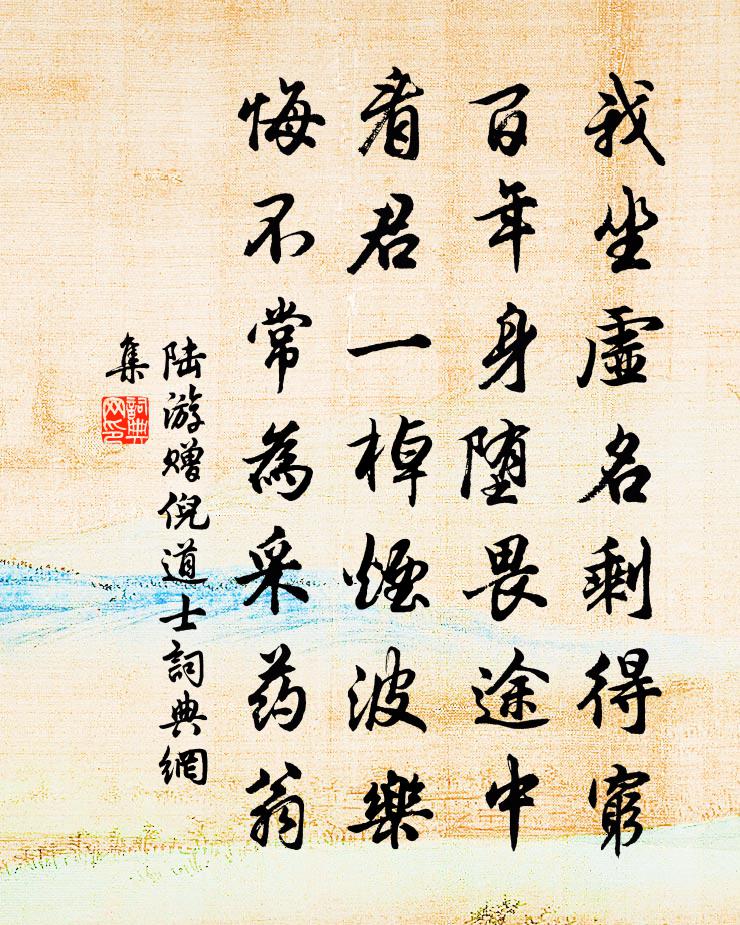 我坐虛名剩得窮
百年身堕畏途中
看君一棹煙波樂
悔不常為采药翁
陆游赠倪道士詞典網
集
詞典
网印